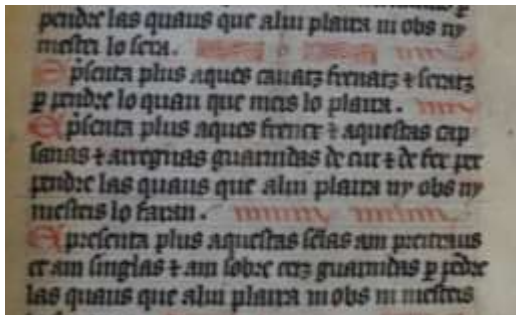 pendre las quaus que alui plaira ni obs ny
mester lo sera.
Apsenta plus aques cauatz frenatz ⁊ selatz
p pendre lo quau que meis lo plaira.
Apsenta plus aques frence ⁊ aquestas cap
sanas ⁊ arregnas guarnidas de cur ⁊ de fer per
pendre las quaus que alui plaira ny obs ny
mesteis lo saran.
Apresenta plus aquestas selas am peitraus
et am singlas ⁊ am sobre guarnidas p pedre
las quaus que alui plaira ni obs ni mesteis